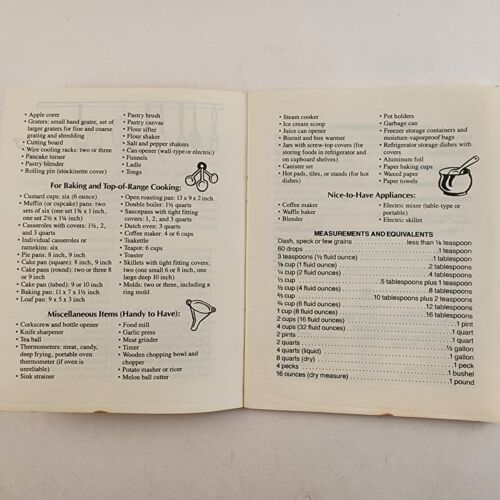 • Apple corer
• Graters: small hand grater, set of
larger graters for fine and coarse
grating and shredding
• Cutting board
• Wire cooling racks: two or three
• Pancake turner
• Pastry blender
• Rolling pin (stockinette cover)
• Pastry brush
• Pastry canvas
• Flour sifter
• Flour shaker
• Salt and pepper shakers
• Can opener (wall-type or electric)
• Funnels
• Ladle
• Tongs
For Baking and Top-of-Range Cooking:
• Custard cups: six (6 ounce)
• Muffin (or cupcake) pans: two
sets of six (one set 1⅜ x 1 inch,
one set 2½ x 1¼ inch)
• Casseroles with covers: 1½, 2,
and 3 quarts
• Individual casseroles or
ramekins: six
• Pie pans: 8 inch, 9 inch
• Cake pan (square): 8 inch, 9 inch
• Cake pans (round): two or three 8
or 9 inch
• Cake pan (tubed): 9 or 10 inch
• Baking pan: 11 x 7 x 1½ inch
• Loaf pan: 9 x 5 x 3 inch
• Open roasting pan: 13 x 9 x 2 inch
• Double boiler: 1½ quarts
• Saucepans with tight fitting
covers: 1, 2, and 3 quarts
• Dutch oven: 3 quarts
• Coffee maker: 4 or 6 cups
• Teakettle
• Teapot: 6 cups
• Toaster
• Skillets with tight fitting covers:
two (one small 6 or 8 inch, one
large deep 10 inch)
• Molds: two or three, including a
ring mold
Miscellaneous Items (Handy to Have):
• Corkscrew and bottle opener
• Knife sharpener
• Tea ball
• Thermometers: meat, candy,
deep frying, portable oven
thermometer (if oven is
unreliable)
• Sink strainer
• Food mill
• Garlic press
• Meat grinder
• Timer
• Wooden chopping bowl and
chopper
• Potato masher or ricer
• Melon ball cutter
• Steam cooker
• Ice cream scoop
• Juice can opener
• Biscuit and bun warmer
• Jars with screw-top covers (for
storing foods in refrigerator and
on cupboard shelves)
• Canister set
• Hot pads, tiles, or stands (for hot
dishes)
• Pot holders
• Garbage can
• Freezer storage containers and
moisture-vaporproof bags
• Refrigerator storage dishes with
covers
• Aluminum foil
• Paper baking cups
• Waxed paper
• Paper towels
Nice-to-Have Appliances:
• Coffee maker
• Waffle baker
• Blender
• Electric mixer (table-type or
portable)
• Electric skillet
MEASUREMENTS AND EQUIVALENTS
Dash, speck or few grains . . . . . less than ⅛ teaspoon
60 drops . . . . . 1 teaspoon
3 teaspoons (½ fluid ounce) . . . . . 1 tablespoon
⅛ cup (1 fluid ounce) . . . . . 2 tablespoons
¼ cup (2 fluid ounce) . . . . . 4 tablespoons
⅓ cup . . . . . 5 tablespoons plus 1 teaspoon
½ cup (4 fluid ounce) . . . . . 8 tablespoons
⅔ cup . . . . . 10 tablespoons plus 2 teaspoons
¾ cup (6 fluid ounce) . . . . . 12 tablespoons
1 cup (8 fluid ounce) . . . . . 16 tablespoons
2 cups (16 fluid ounce) . . . . . 1 pint
4 cups (32 fluid ounce) . . . . . 1 quart
2 pints . . . . . 1 quart
2 quarts . . . . . ½ gallon
4 quarts (liquid) . . . . . 1 gallon
8 quarts (dry) . . . . . 1 peck
4 pecks . . . . . 1 bushel
16 ounces (dry measure) . . . . . 1 pound